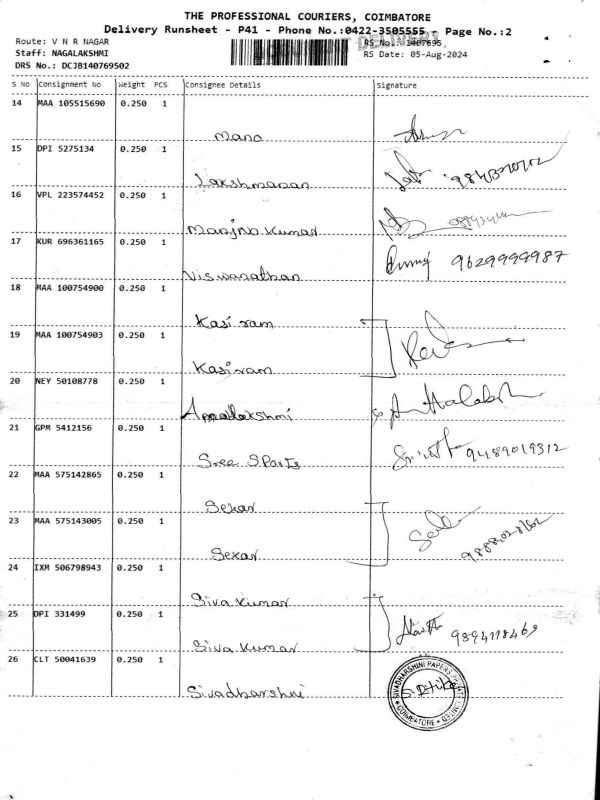 THE PROFESSIONAL COURIERS, COIMBATORE
Delivery Runsheet - P41 - Phone No.:0422-3505555 - Page No.:2
DELIVERY
Route: V N R NAGAR
RS No.: 1407695,
Staff: NAGALAKSHMI
RS Date: 05-Aug-2024
DRS No.: DCJB140769502
S No Consignment No Weight PCS Consignee Details Signature
14 MAA 105515690 0.250 1
Mano
15 DPI 5275134 0.250 1
Lakshmanan
16 VPL 223574452 0.250 1
Manjno Kumar
17 KUR 696361165 0.250 1
Viswanathan 9629999987
18 MAA 100754900 0.250 1
Kasi ram
19 MAA 100754903 0.250 1
Kasi ram
20 NEY 50108778 0.250 1
21 GPM 5412156 0.250 1
Sree Sports 9489019312
22 MAA 575142865 0.250 1
Sekar
23 MAA 575143005 0.250 1
Sekar
24 IXM 506798943 0.250 1
Siva Kumar
25 DPI 331499 0.250 1
Siva Kumar 9894118469
26 CLT 50041639 0.250 1
Sivadharshni
SIVADHARSHINI PAPERS PRIVATE LIMITED
COIMBATORE